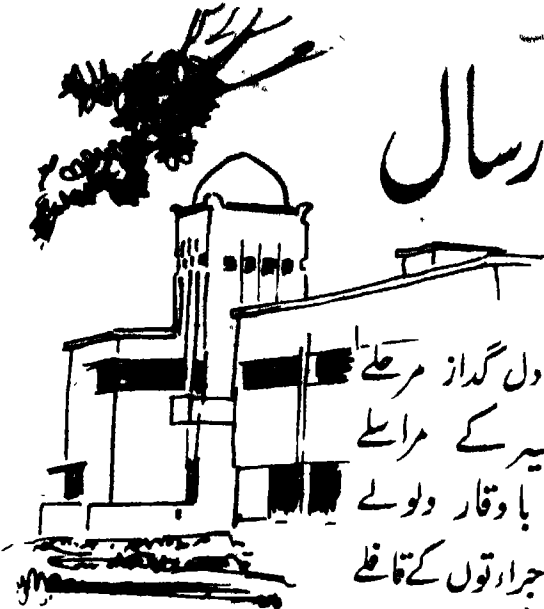 رسال
دل گداز مرحلے
کے مراسلے
باوقار ولولے
جراءتوں کے قافلے